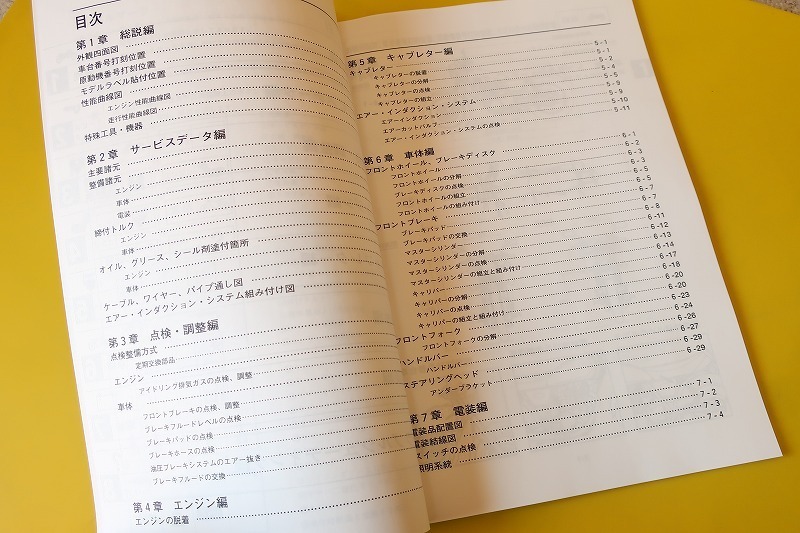 目次
第1章 総説編
外観四面図
車台番号打刻位置
原動機番号打刻位置
モデルラベル貼付位置
性能曲線図
エンジン性能曲線図
走行性能曲線図
特殊工具・機器
第2章 サービスデータ編
主要諸元
整備諸元
エンジン
車体
電装
締付トルク
エンジン
車体
オイル、グリース、シール剤塗付箇所
エンジン
車体
ケーブル、ワイヤー、パイプ通し図
エアー・インダクション・システム組み付け図
第3章 点検・調整編
点検整備方式
定期交換部品
エンジン
アイドリング排気ガスの点検、調整
車体
フロントブレーキの点検、調整
ブレーキフルードレベルの点検
ブレーキパッドの点検
ブレーキホースの点検
油圧ブレーキシステムのエアー抜き
ブレーキフルードの交換
第4章 エンジン編
エンジンの脱着
第5章 キャブレター編
キャブレター 5-1
キャブレターの脱着 5-2
キャブレターの分解 5-4
キャブレターの点検 5-5
キャブレターの組立 5-5
エアー・インダクション・システム 5-9
エアーインダクション 5-9
エアーカットバルブ 5-10
エアー・インダクション・システムの点検 5-11
第6章 車体編
フロントホイール、ブレーキディスク 6-1
フロントホイール 6-2
フロントホイールの分解 6-3
ブレーキディスクの点検 6-3
フロントホイールの組立 6-5
フロントホイールの組み付け 6-7
フロントブレーキ 6-7
ブレーキパッド 6-8
ブレーキパッドの交換 6-11
マスターシリンダー 6-12
マスターシリンダーの分解 6-13
マスターシリンダーの点検 6-14
マスターシリンダーの組立と組み付け 6-17
キャリパー 6-18
キャリパーの分解 6-20
キャリパーの点検 6-20
キャリパーの組立と組み付け 6-23
フロントフォーク 6-24
フロントフォークの分解 6-26
ハンドルバー 6-27
ハンドルバー 6-29
ステアリングヘッド 6-29
アンダーブラケット
第7章 電装編
電装品配置図 7-1
電装結線図 7-2
スイッチの点検 7-3
照明系統 7-4